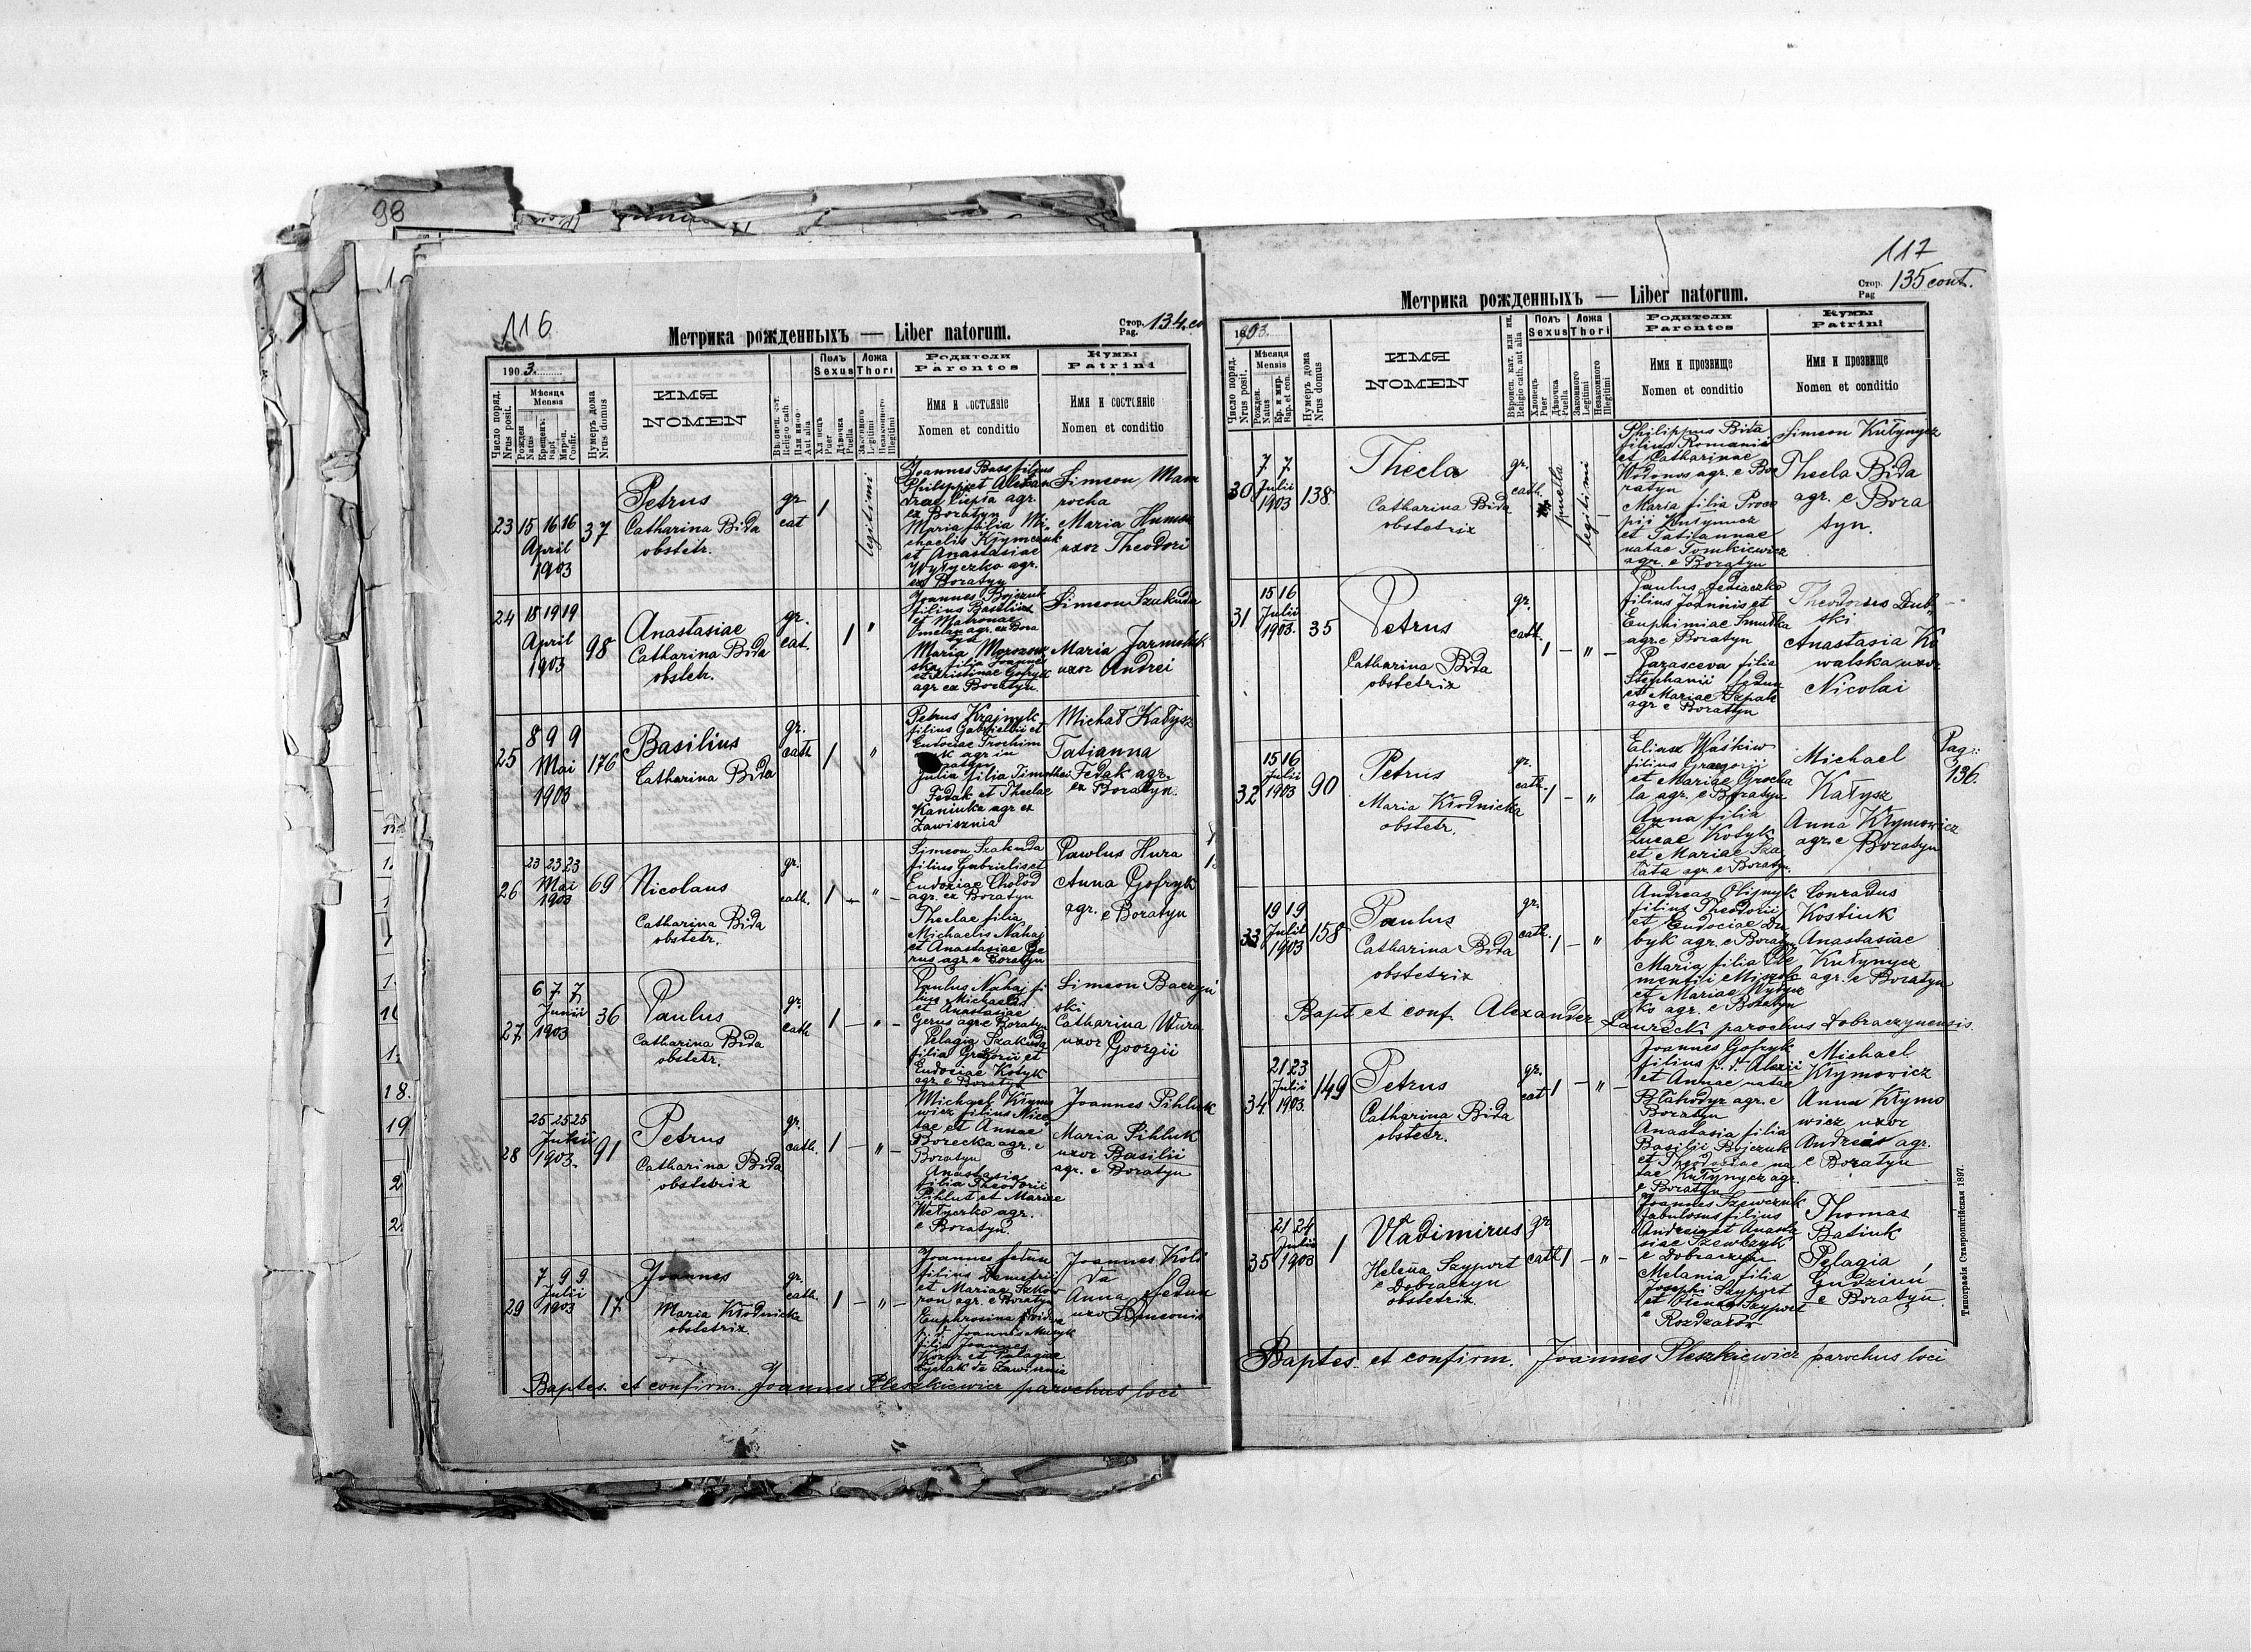 98
116
Метрика рожденныхъ — Liber natorum.
Стор. Pag. 134
1903.
Число поряд. Nrus posit.
Мѣсяца Mensis
Рожден Natus
Крещенъ: Bapt
Миров. Confir.
Нумеръ дома Nrus domus
ИМЯ
NOMEN
Полъ Sexus
Дѣвочка Puella
Ложа Thori
Legitimi
Illegitimi
Родители
Parentes
Имя и состояніе
Nomen et conditio
Кумы
Patrini
Имя и состояніе
Nomen et conditio
23 15 16 16 April 1903 37
Petrus
Catharina Bida
obstetr.
gr cat 1 legitimi
Joannes Bass filius
Philippi et Alexan
drae Liepta agr.
ex Boratyn
Maria filia Mi
chaelis Krymczuk
et Anastasiae
Wytyczko agr.
ex Boratyn
Simeon Mam
rocha
Maria Humen
uxor Theodori
24 18 19 19 April 1903 98
Anastasiae
Catharina Bida
obstetr.
gr. cat. 1 "
Joannes Bojczuk
filius Basilii
et Matronae
Omelan agr. ex Bora
tyn
Maria Morozow
ska filia Joannis
et Kristinae Gofryk
agr ex Boratyn.
Simeon Szakuda
Maria Jarmoluk
uxor Andrei
25 8 9 9 Mai 1903 176
Basilius
Catharina Bida
gr. cath 1 "
Petrus Krajnyk
filius Gabrielis et
Eudociae Trochim
Julia filia Timothei
Fedak et Theclae
Kaniuka agr ex
Zawisznia
Michał Katysz
Tatianna
Fedak agr.
ex Boratyn.
26 23 23 23 Mai 1903 69
Nicolaus
Catharina Bida
obstetr.
gr. cath. 1 — " —
Simeon Szakuda
filius Gabrielis et
Eudoxiae Chołod
agr. ex Boratyn
Theclae filia
Michaelis Nahaj
et Anastasiae Ge
rus agr. e Boratyn
Pawlus Hura
Anna Gofryk
agr. e Boratyn
27 6 7 7 Junii 1903 36
Paulus
Catharina Bida
obstetr.
gr. cath 1 — " —
Paulus Nahaj fi
lius Michaelis
et Anastasiae
Gerus agr e Boratyn
Pelagia Szakuda
filia Gregorii et
Eudociae Kotyk
agr. e Boratyn
Simeon Baczyń
ski
Catharina Wura
uxor Georgii
28 25 25 25 1903. 91
Petrus
Catharina Bida
obstetrix
gr. cath. 1 — " —
Michael Kłymo
wicz filius Nice
tae et Annae
Borecka agr. e
Boratyn
Anastasia
filia Theodorii
Pihlut et Mariae
Wetyczko agr.
e Boratyn.
Joannes Pihluk
Maria Pihluk
uxor Basilii
agr. e Boratyn
29 7 9 9 Julii 1903 17
Joannes
Maria Kłodnicka
obstetrix.
gr. cath. 1 — " —
Joannes Fedun
filius Demetrii
et Mariae Szkow
ron agr. e Boratyn
Euphrosina
p. d. Joannes
filia Joannes
Kozyr et Pelagiae
de Zawisznia
Joannes Koli
da
Anna Fedun
uxo Simeonis
Baptes. et confirm. Joannes Pleszkiewicz parochus loci
117
Метрика рожденныхъ — Liber natorum.
Стор. Pag 135 cont.
1903.
Число поряд. Nrus posit.
Мѣсяца Mensis
Рожден. Natus
Кр. и мир. Bap. et con.
Нумеръ дома Nrus domus
ИМЯ
NOMEN
Вѣроисп. кат. или ин. Religio cath. aut alia
Полъ Sexus
Хлопецъ Puer
Дѣвочка Puella
Ложа Thori
Законного Legitimi
Незаконного Illegitimi
Родители
Parentes
Имя и прозвище
Nomen et conditio
Кумы
Patrini
Имя и прозвище
Nomen et conditio
30 7 7 Julii 1903 138
Thecla
Catharina Bida
obstetrix
gr. cath. puella legitimi
Philippus Bida
filius Romania
et Catharinae
Wodonos agr. e Bo
ratyn
Maria filia Proco
pii Kutynycz
et Tatiannae
natae Tomkiewicz
agr. e Boratyn
Simeon Kutynycz
Thecla Bida
agr. e Bora
tyn.
31 15 16 Julii 1903. 35
Petrus
Catharina Bida
obstetrix
gr. cath. 1 — " —
Paulus Fediaczko
filius Joannis et
Euphimiae Smutka
agr. e Boratyn
Parasceva filia
Stephanii Fedun
et Mariae Szpak
agr e Boratyn
Theodorus Dub
ski
Anastasia Ko
walska uxor
Nicolai
32 15 16 Julii 1903 90
Petrus
Maria Kłodnicka
obstetr.
gr. cath. 1 — "
Eliasz Waśkiw
filius Gregorii
et Mariae Grocha
la agr. e Boratyn
Anna filia
Lucae Kotyk
et Mariae Sza
łata agr. e Boratyn.
Michael
Katysz
Anna Kłymowicz
agr. e Boratyn
Pag: 136.
33 19 19 Julii 1903 158
Paulus
Catharina Bida
obstetrix
gr. cath. 1 — "
Andreas Olijnyk
filius Theodorii
et Eudociae Du
byk agr. e Boratyn
Maria filia Cle
mentii
et Mariae Wytycz
ko agr. e Boratyn
Conradus
Kostiuk
Anastasiae
Kutynycz
agr. e Boratyn
Bapt et conf. Alexander Laurecki parochus Dobraczynensis.
34 21 23 Julii 1903. 149
Petrus
Catharina Bida
obstetr.
gr. cat 1 — " —
Joannes Gofryk
filius p. d. Alexii
et Annae natae
Błahodyr agr. e
Boratyn
Anastasia filia
Basilii Bojczuk
et Theodosiae na
tae Kutynycz agr.
e Boratyn
Michael
Kłymowicz
Anna Kłymo
wicz uxor
Andreas agr.
e Boratyn
35 21 24 Julii 1903 1
Vladimirus
Helena Szyport
e Dobraczyn
obstetrix.
gr cath 1 — " —
Joannes Szewczuk
fabulosus filius
Andreia et Anasta
siae Szewczyk
e Dobraczyn
Melania filia
Josephi Szyport
et Szyport
e Rozdzałów
Thomas
Batiuk
Pelagia
Gudziun
e Boratyn.
Baptes. et confirm. Joannes Pleszkiewicz parochus loci
Типографія Ставропигійская 1897.